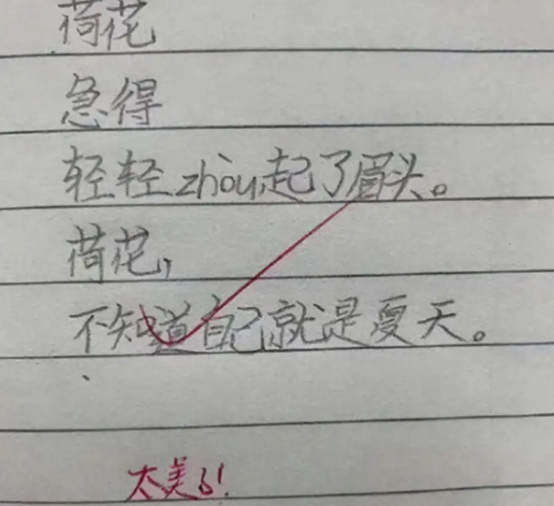 荷花
急得
轻轻zhòu起了眉头。
荷花,
不知道自己就是夏天。
太美了!